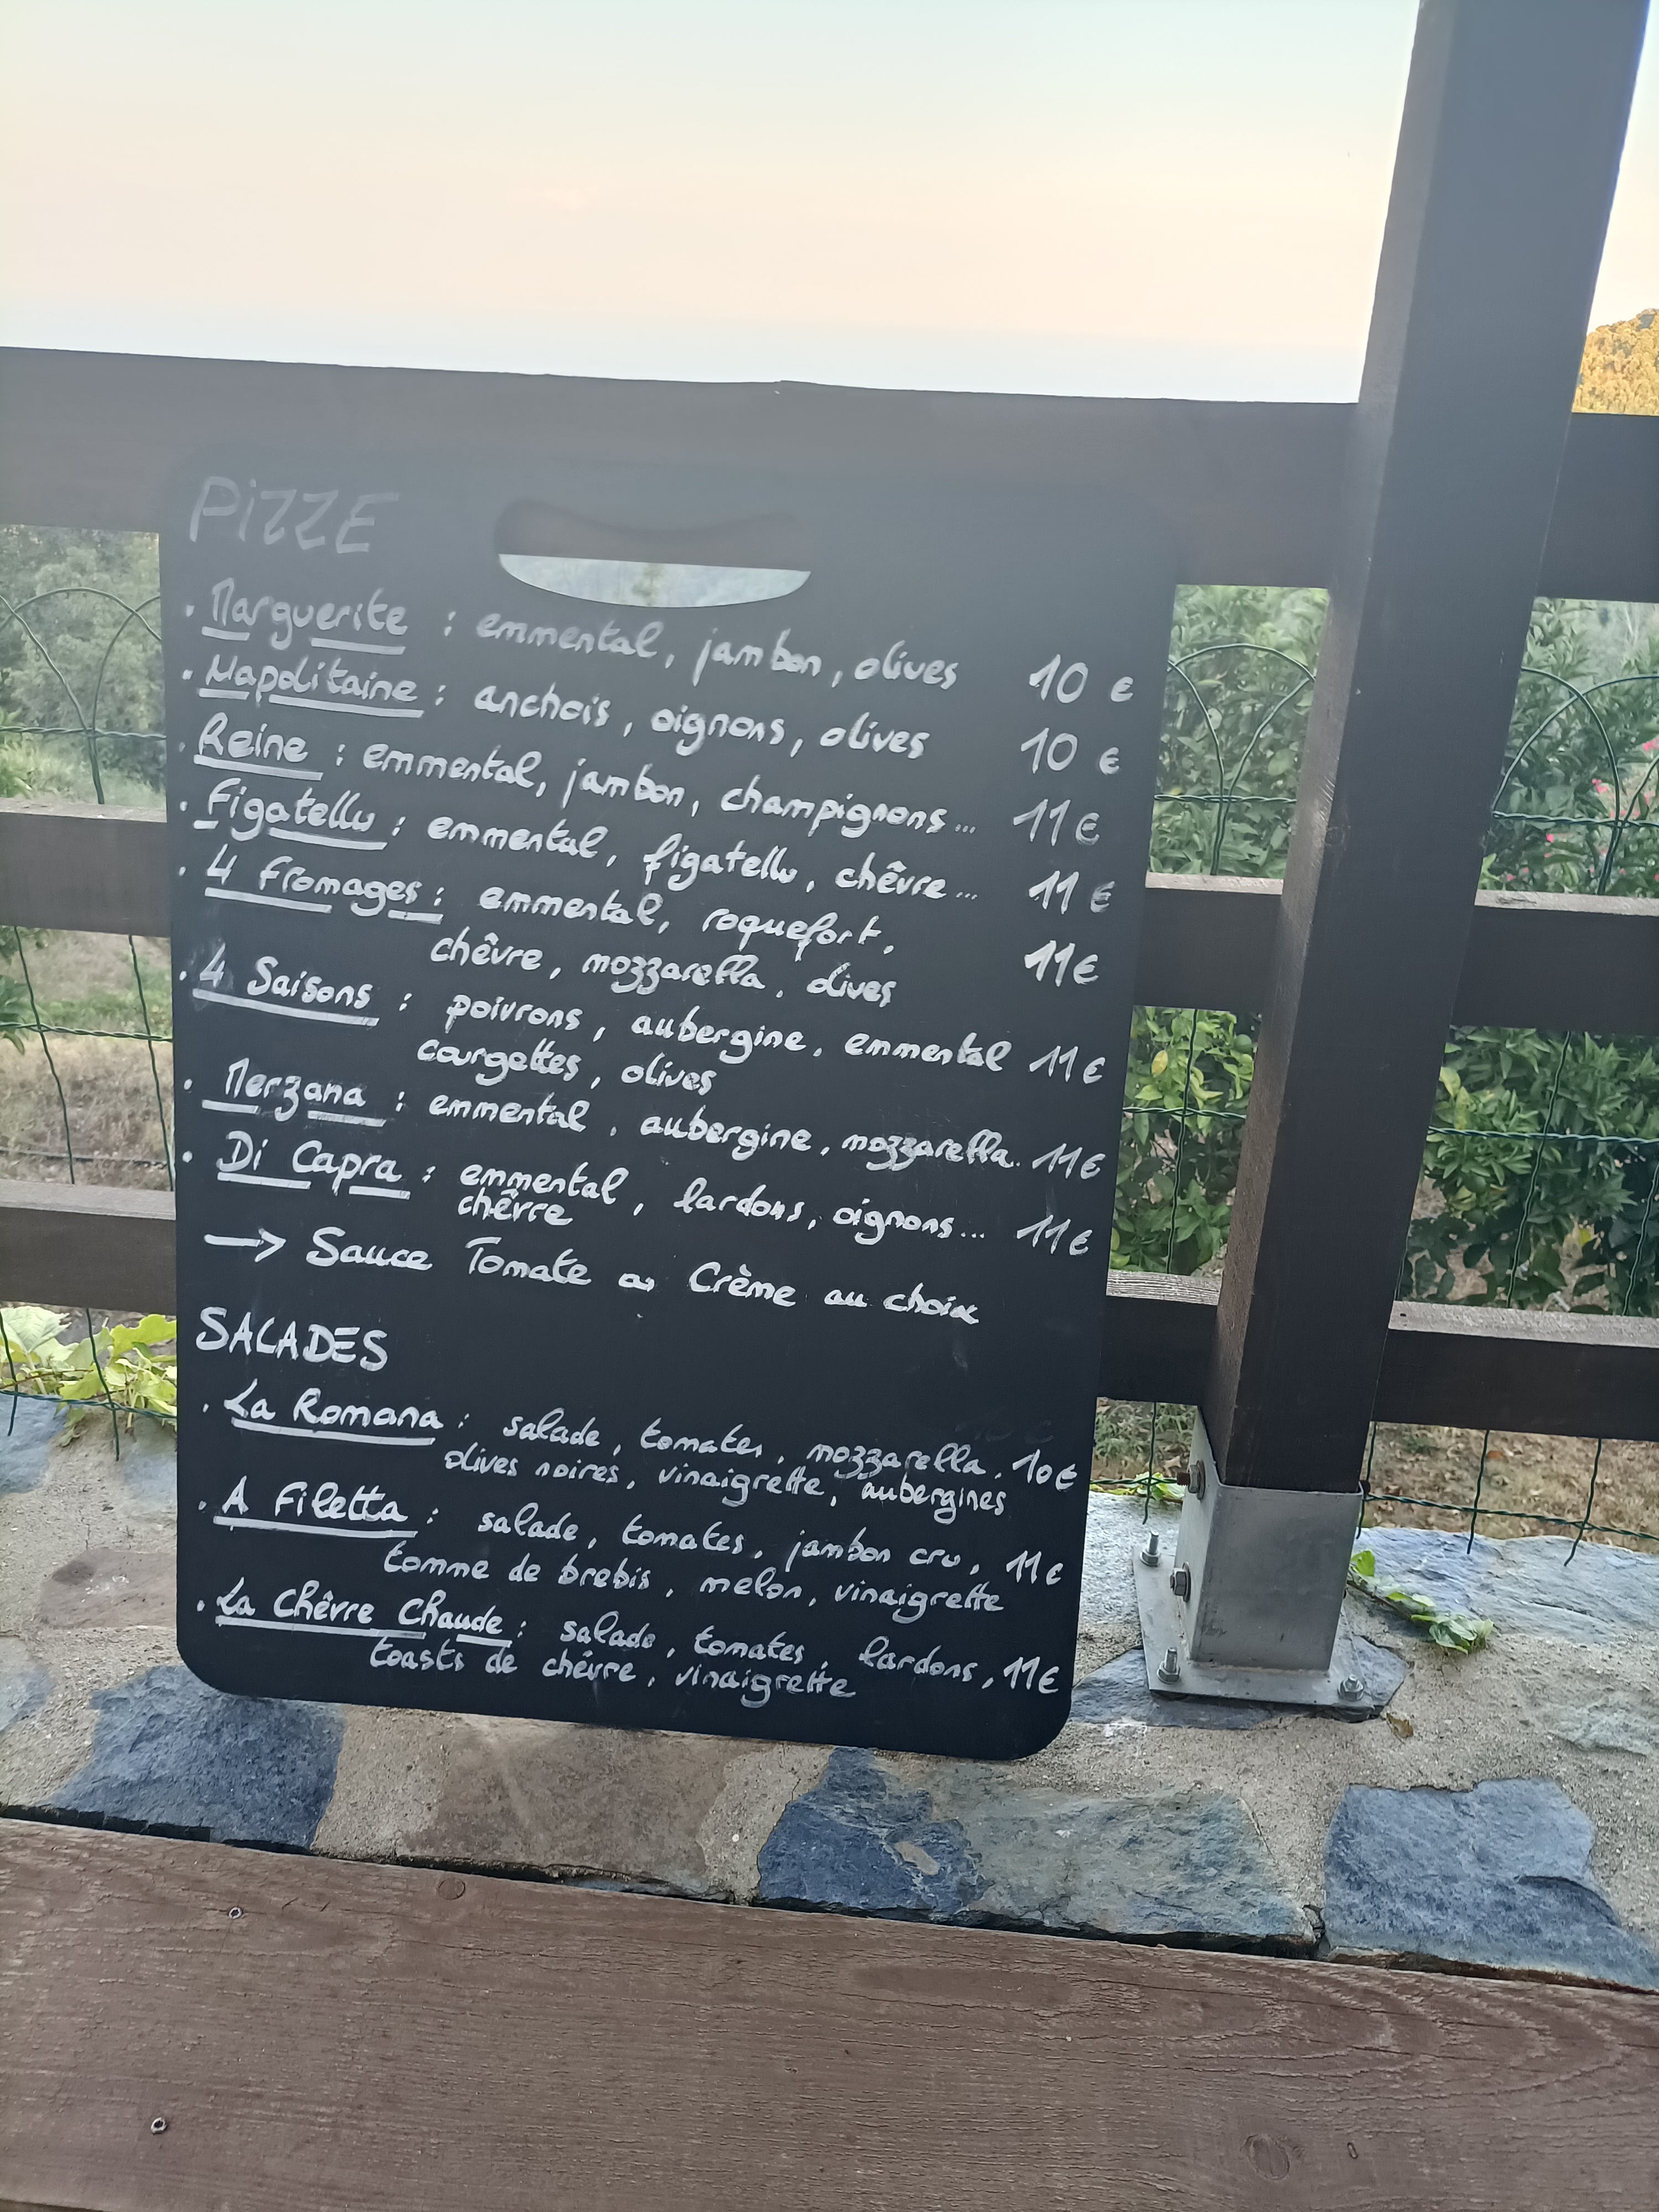 PiZZE
. Marguerite : emmental, jambon, olives 10 €
. Napolitaine : anchois, oignons, olives 10 €
. Reine : emmental, jambon, champignons... 11 €
. Figatellu : emmental, figatellu, chêvre... 11 €
. 4 Fromages : emmental, roquefort, 11 €
chêvre, mozzarella, olives
. 4 Saisons : poivrons, aubergine, emmental 11 €
courgettes, olives
. Merzana : emmental, aubergine, mozzarella. 11 €
. Di Capra : emmental, lardons, oignons... 11 €
chêvre
→ Sauce Tomate ou Crème au choix
SALADES
. La Romana : salade, tomates, mozzarella, 10 €
olives noires, vinaigrette, aubergines
. A Filetta : salade, tomates, jambon cru, 11 €
tomme de brebis, melon, vinaigrette
. La Chêvre Chaude : salade, tomates, lardons, 11 €
toasts de chêvre, vinaigrette